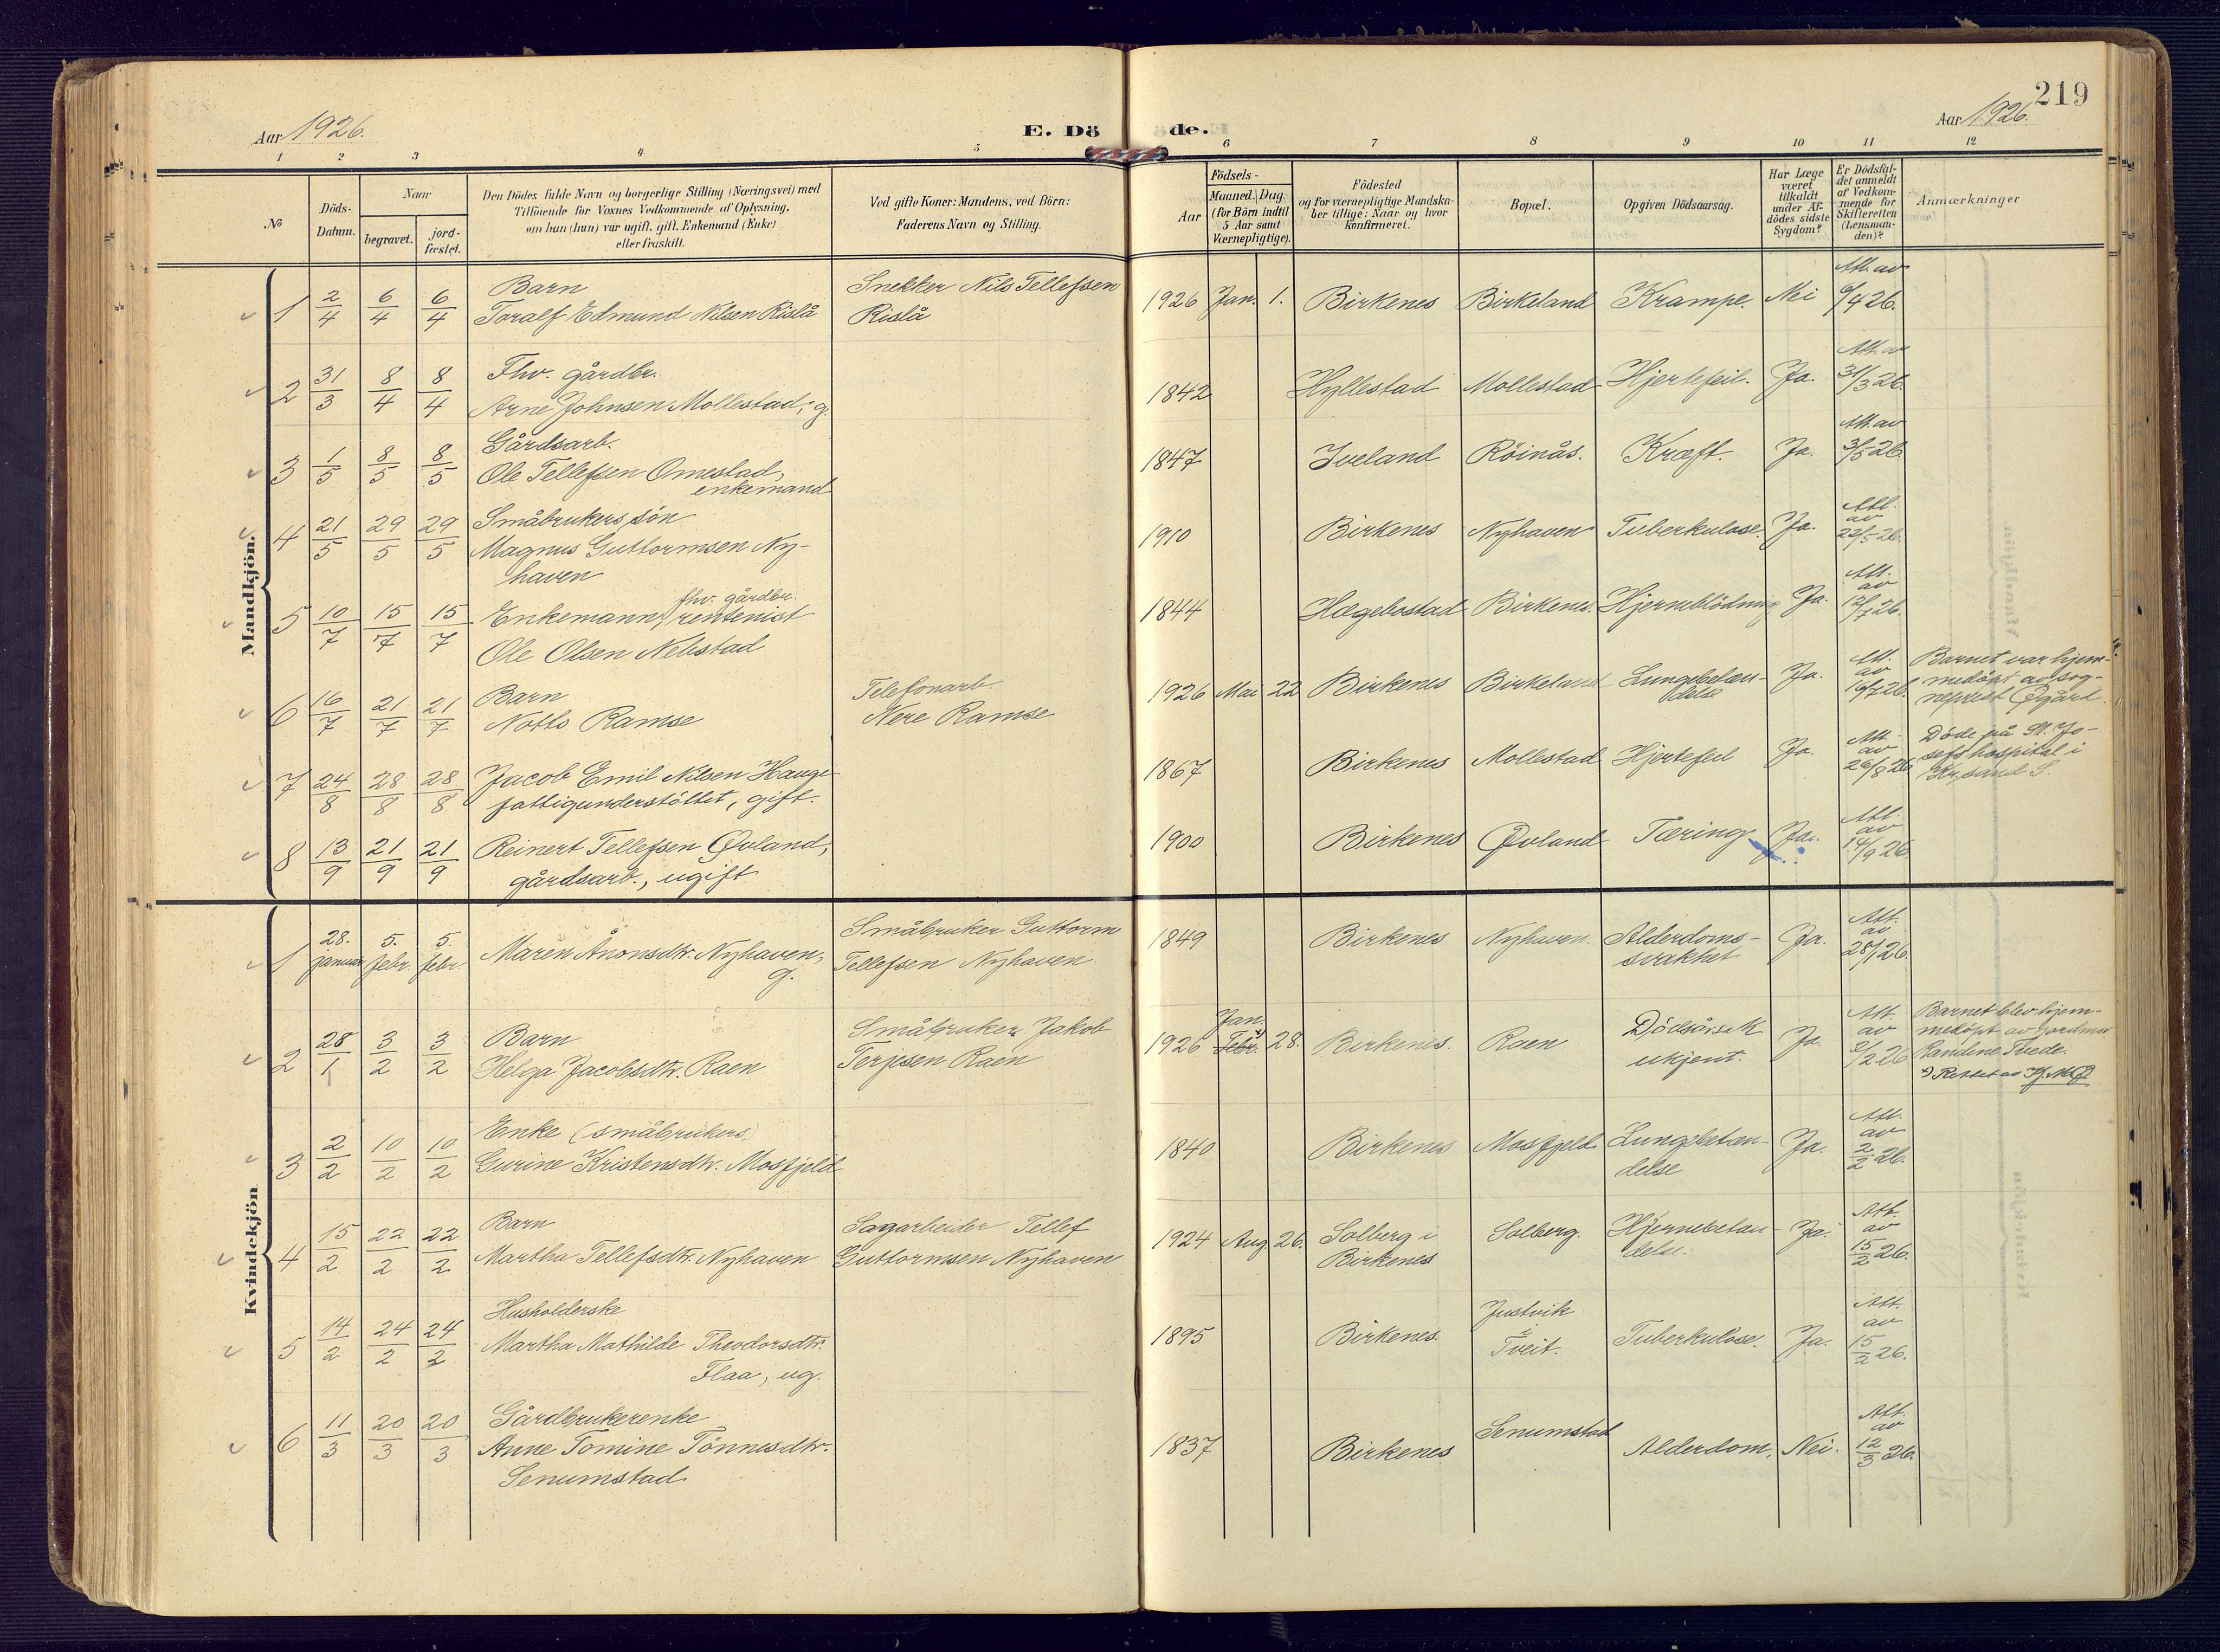 219
Aar 1926.
E. Dö de.
Aar 1926.
1 2 3 4 5 6 7 8 9 10 11 12
№
Döds-
Datum.
Naar
begravet.
jord-
fæstet.
Den Dödes fulde Navn og borgerlige Stilling (Næringsvei) med
Tilföiende for Voxnes Vedkommende af Oplysning,
om han (hun) var ugift, gift, Enkemand (Enke)
eller fraskilt.
Ved gifte Koner: Mandens, ved Börn:
Faderens Navn og Stilling.
Födsels-
Aar
Maaned. Dag
(for Börn indtil
5 Aar samt
Værnepligtige).
Födested
og for værnepligtige Mandska-
ber tillige: Naar og hvor
konfirmeret.
Bopæl.
Opgiven Dödsaarsag.
Har Læge
været
tilkaldt
under Af-
dödes sidste
Sygdom?
Er Dödsfal-
det anmeldt
af Vedkom-
mende for
Skifteretten
(Lensman-
den)?
Anmærkninger
Mandkjön.
1 2/4 6/4 6/4 Barn
Toralf Edmund Nilsen Rislå
Snekker Nils Tellefsen
Rislå
1926 Jan. 1. Birkenes Birkeland Krampe. Nei Att. av
6/4 26.
2 31/3 8/4 8/4 Fhv. gårdbr.
Arne Johnsen Mollestad, g.
1842 Hyllestad Mollestad Hjertefeil. Ja. Att. av
31/3 26.
3 1/5 8/5 8/5 Gårdsarb.
Ole Tellefsen Omestad,
enkemand
1847 Iveland Röinås. Kræft. Ja. Att av
3/5 26.
4 21/5 29/5 29/5 Småbrukers sön
Magnus Guttormsen Ny-
haven
1910 Birkenes Nyhaven Tuberkulose. Ja. Att.
av
22/5 26.
5 10/7 15/7 15/7 Enkemann, fhv. gårdbr.
rentenist
Ole Olsen Nebstad
1844 Hægebostad Birkenes. Hjerneblödning Ja. Att.
av
12/7 26.
6 16/7 21/7 21/7 Barn
Notto Ramse
Telefonarb.
Nere Ramse
1926 Mai 22 Birkenes Birkeland Lungebetæn-
delse Ja. Att.
av
16/7 26.
Barnet var hjem-
medöpt av sog-
neprest Øgård.
7 24/8 28/8 28/8 Jacob Emil Nilsen Hauge
fattigunderstöttet, gift.
1867 Birkenes Mollestad Hjertefeil Ja. Att.
av
26/8 26
Döde på St. Jo-
sefs hospital i
Kr.sand S.
8 13/9 21/9 21/9 Reinert Tellefsen Øvland,
gårdsarb., ugift
1900 Birkenes Øvland Tæring Ja. Att.
av
14/9 26.
Kvindekjön
1 28. januar 5. febr. 5. febr. Maren Ånonsdtr. Nyhaven,
g.
Småbruker Guttorm
Tellefsen Nyhaven
1849 Birkenes Nyhaven. Alderdoms-
svakhet Ja. Att.
av
28/1 26.
2 28/1 3/2 3/2 Barn
Helga Jacobsdtr. Raen
Småbruker Jakob
Terjesen Raen
1926 Jan.
Febr. 28. Birkenes. Raen Dödsårsak
ukjent. Ja. Att
av
2/2 26
Barnet blev hjem-
medöpt av jordmor
Randine Tvede.
3 2/2 10/2 10/2 Enke (småbrukers)
Gurine Kristensdtr. Mosfjeld
1840 Birkenes Mosfjeld Lungebetæn-
delse Ja. Att.
av
2/2 26.
4 15/2 22/2 22/2 Barn
Martha Tellefsdtr. Nyhaven
Sagarbeider Tellef
Guttormsen Nyhaven
1924 Aug. 26. Solberg i
Birkenes
Solberg. Hjernebetæn-
delse. Ja. Att.
av
15/2 26.
5 14/2 24/2 24/2 Husholderske
Martha Mathilde Theodorsdtr.
Flaa, ug.
1895 Birkenes. Justvik
i
Tveit. Tuberkulose. Ja. Att.
av
15/2 26.
6 11/3 20/3 20/3 Gårdbrukerenke
Anne Tomine Tönnesdtr.
Senumstad
1837 Birkenes Senumstad Alderdom. Nei. Att.
av
12/3 26.